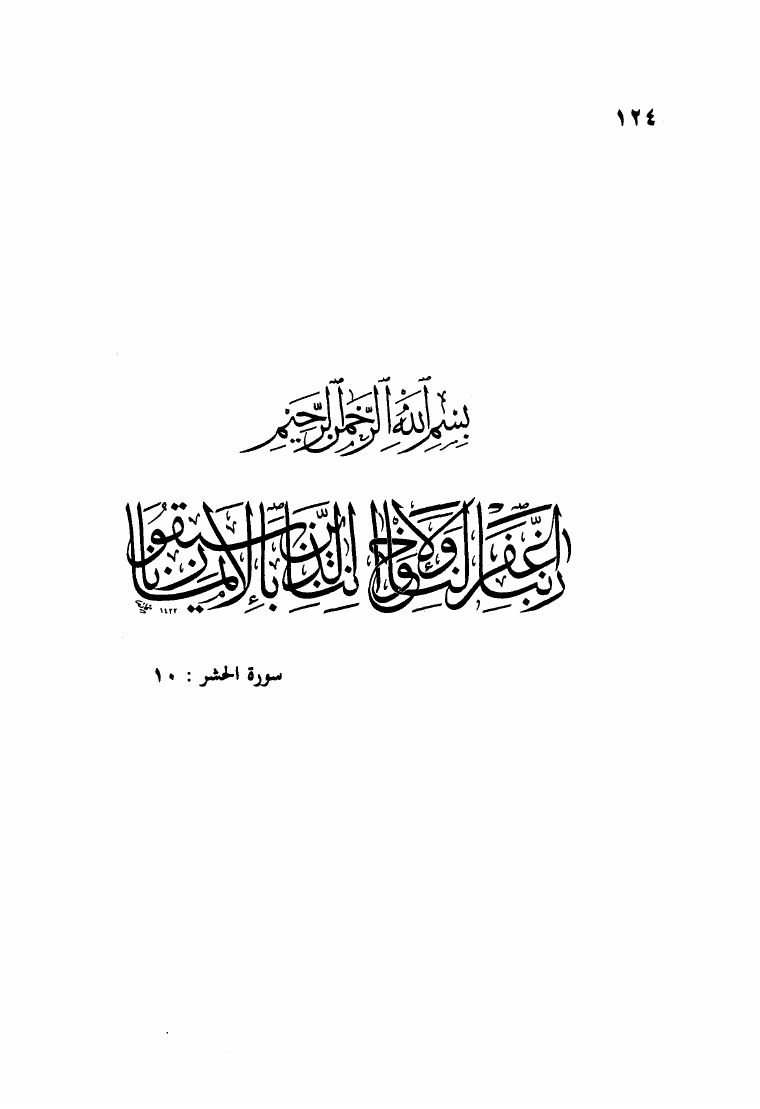 ١٢٤
بِسْمِ اللَّهِ الرَّحْمَٰنِ الرَّحِيمِ
رَبَّنَا اغْفِرْ لَنَا وَلِإِخْوَانِنَا الَّذِينَ سَبَقُونَا بِالْإِيمَانِ
١٤٢٢
سورة الحشر : ١٠